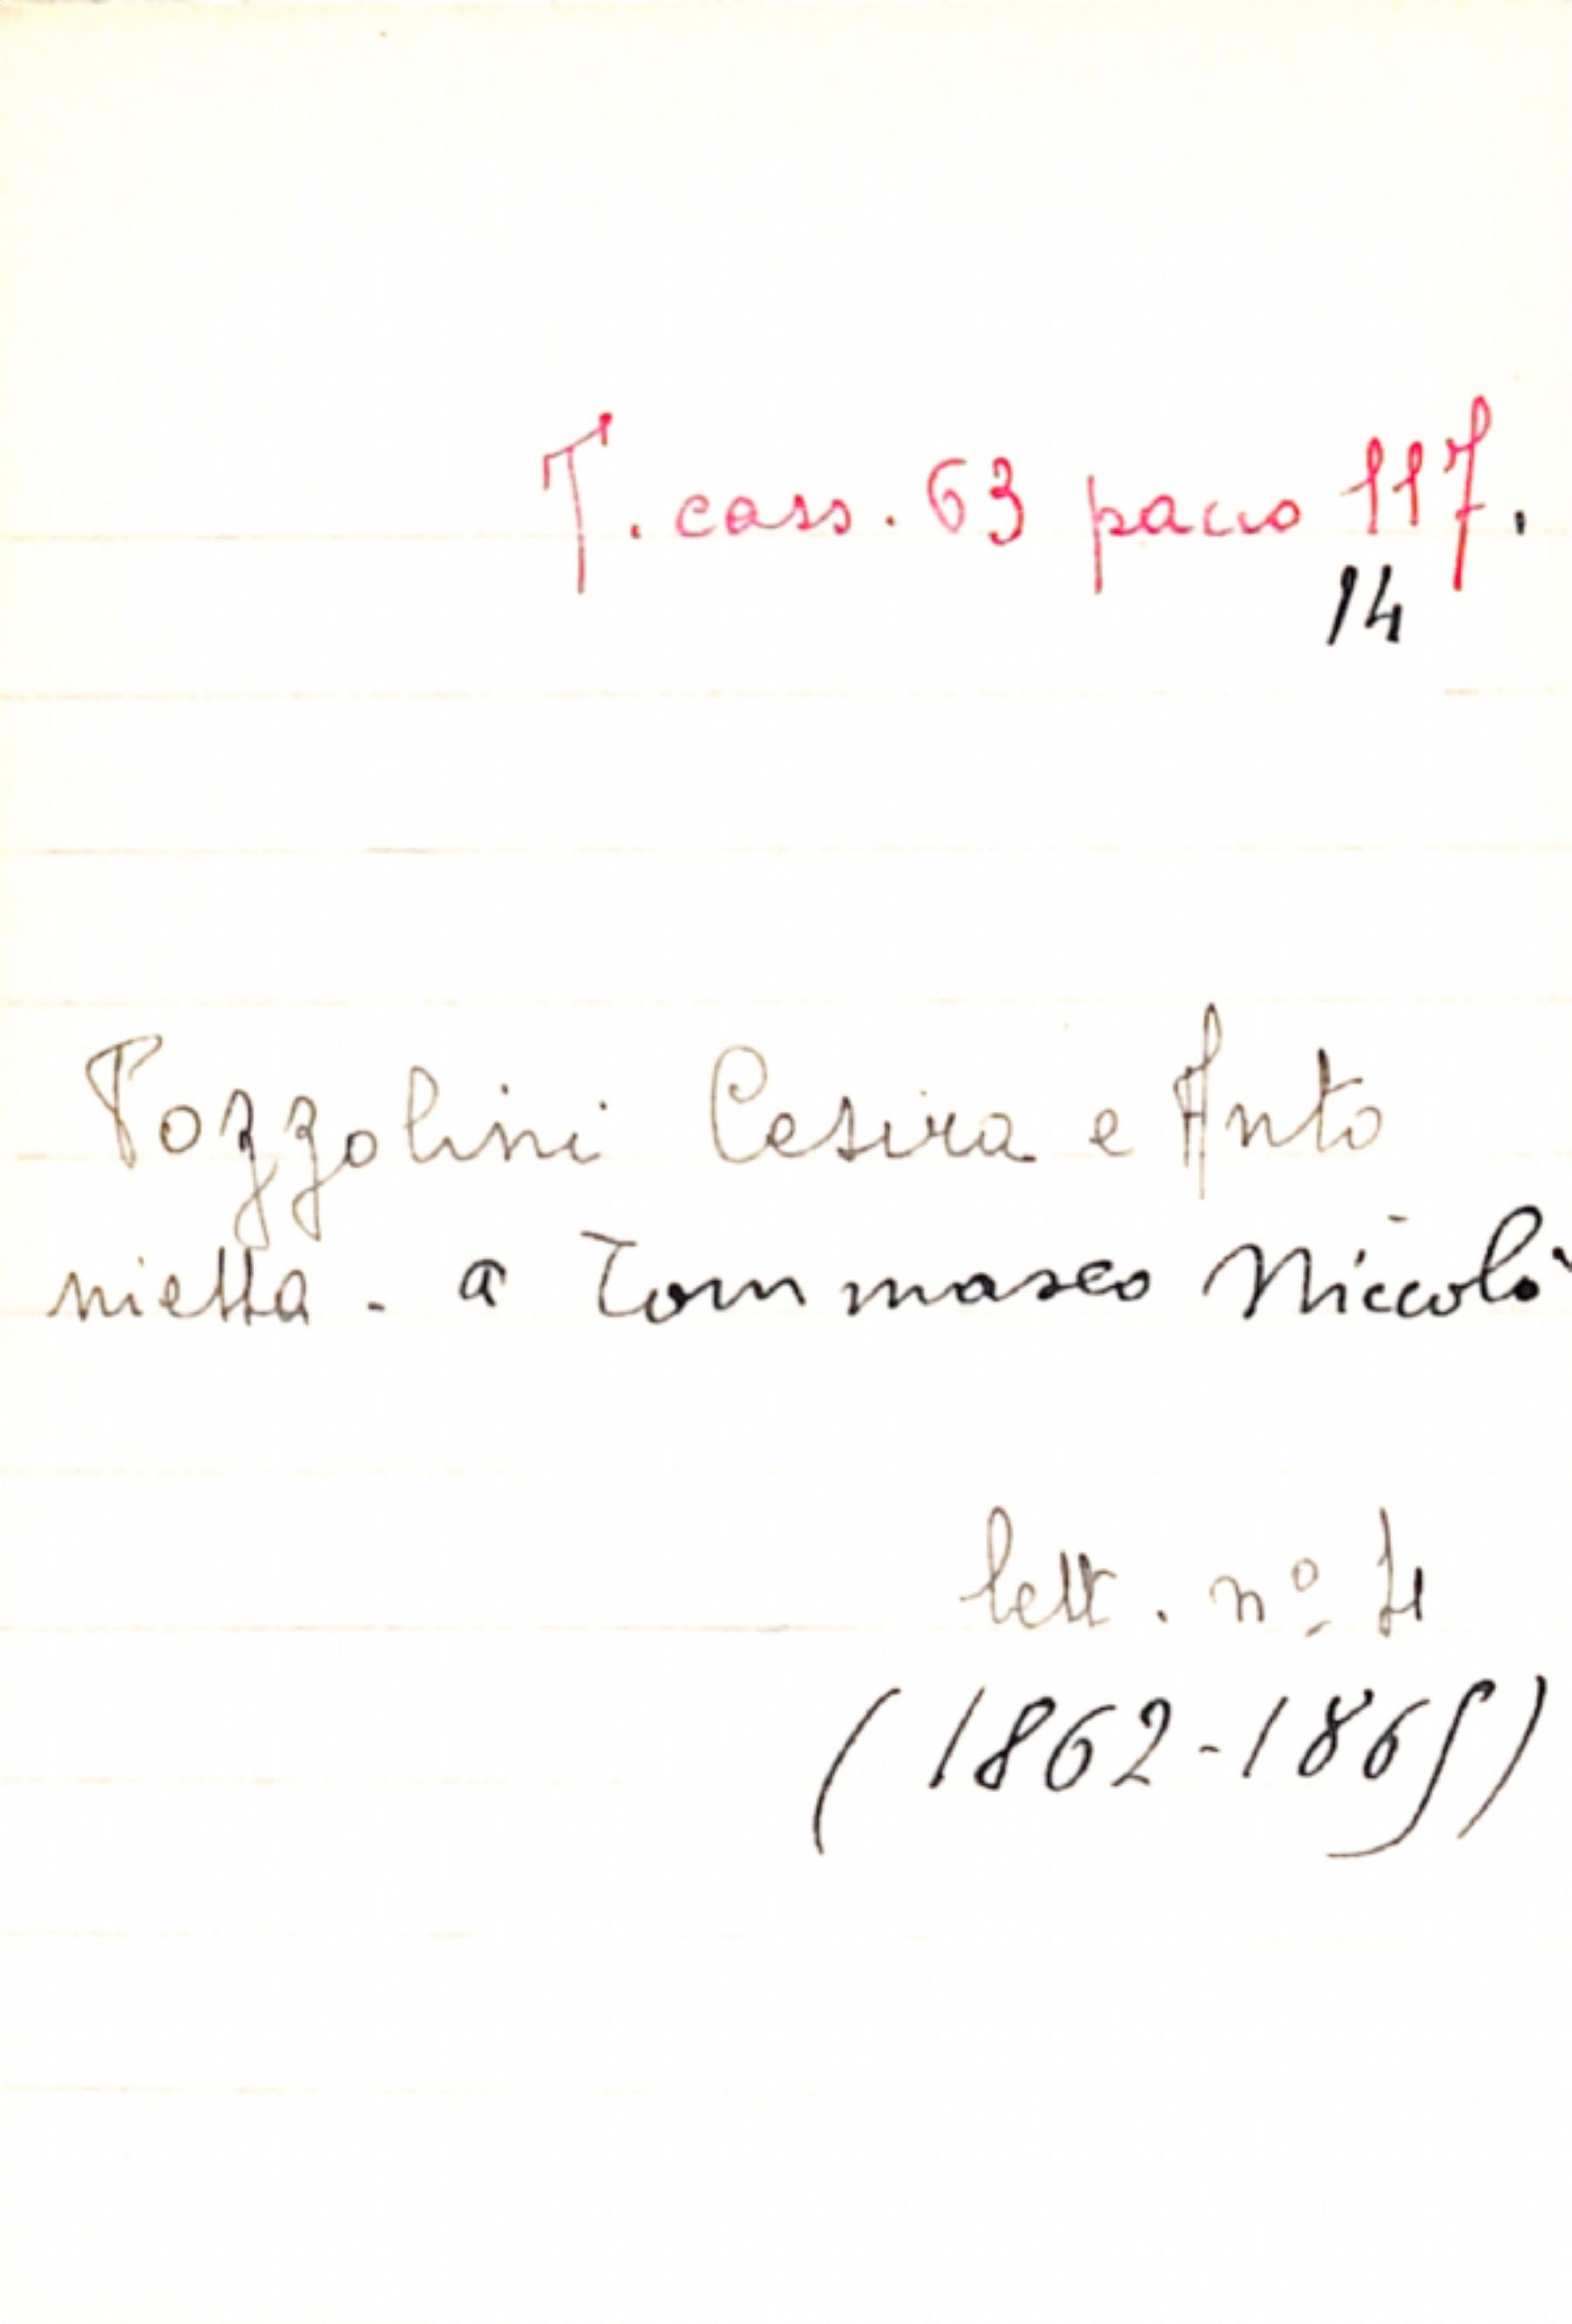 T. cass. 63 pacco 117.
14
Pozzolini Cesira e Anto
nietta - a Tommaseo Niccolò
lett. nº 4
(1862-1865)